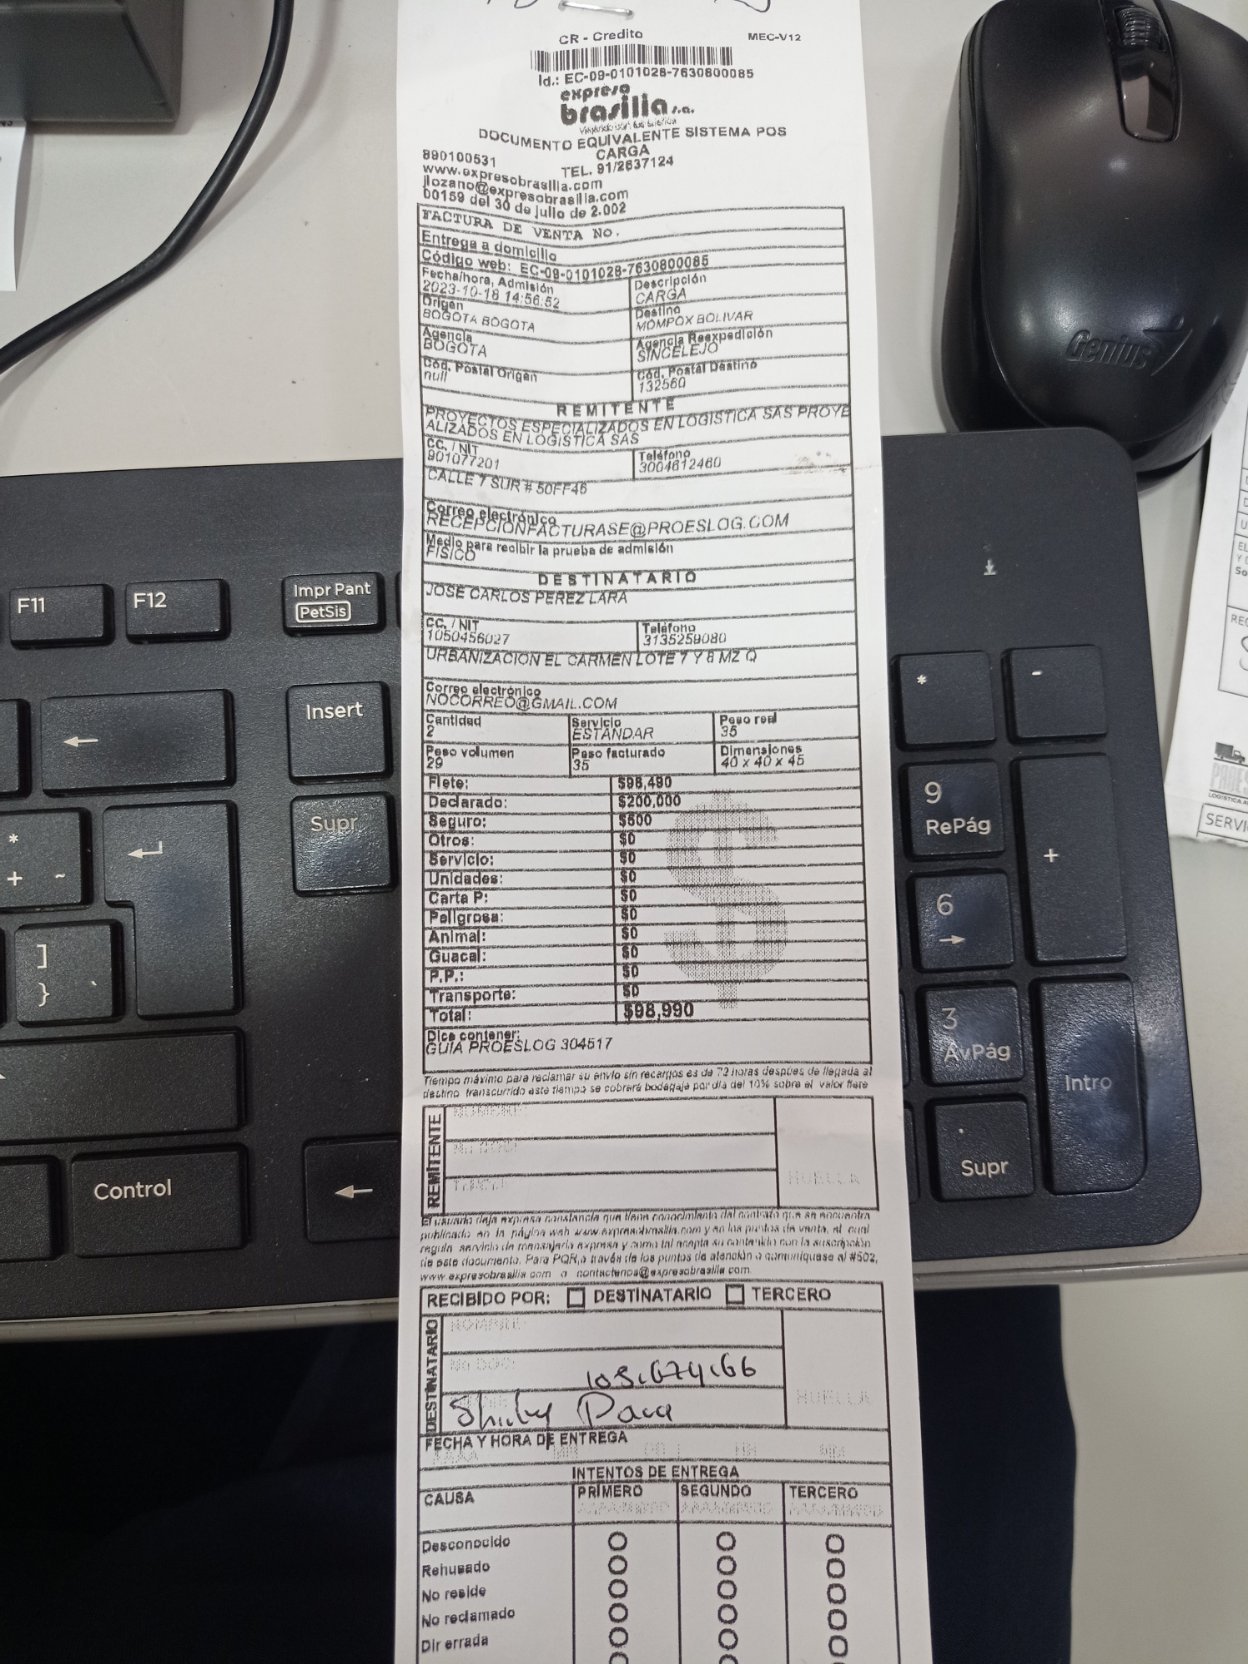 CR - Credito
MEC-V12
Id.: EC-09-0101028-7630800085
expreso
brasilia s.a.
DOCUMENTO EQUIVALENTE SISTEMA POS
CARGA
890100531
TEL. 91/2637124
www.expresobrasilia.com
jlozano@expresobrasilia.com
00159 del 30 de julio de 2.002
FACTURA DE VENTA NO.
Entrega a domicilio
Código web: EC-09-0101028-7630800085
Fecha/hora, Admisión
2023-10-18 14:56:52
Descripción
CARGA
Origen
BOGOTA BOGOTA
Destino
MOMPOX BOLIVAR
Agencia
BOGOTA
Agencia Reexpedición
SINCELEJO
Cód. Postal Origen
null
Cód. Postal Destino
132560
REMITENTE
PROYECTOS ESPECIALIZADOS EN LOGISTICA SAS PROYE
ALIZADOS EN LOGISTICA SAS
CC. / NIT
901077201
Teléfono
3004612460
CALLE 7 SUR # 50FF46
Correo electrónico
RECEPCIONFACTURASE@PROESLOG.COM
Medio para recibir la prueba de admisión
FISICO
DESTINATARIO
JOSE CARLOS PEREZ LARA
CC. / NIT
1050456027
Teléfono
3135259080
URBANIZACION EL CARMEN LOTE 7 Y 8 MZ Q
Correo electrónico
NOCORREO@GMAIL.COM
Cantidad
2
Servicio
ESTANDAR
Peso real
35
Peso volumen
29
Peso facturado
35
Dimensiones
40 x 40 x 45
Flete: $98,490
Declarado: $200,000
Seguro: $600
Otros: $0
Servicio: $0
Unidades: $0
Carta P: $0
Peligrosa: $0
Animal: $0
Guacal: $0
P.P.: $0
Transporte: $0
Total: $98,990
Dice contener:
GUIA PROESLOG 304517
Tiempo máximo para reclamar su envío sin recargos es de 72 horas después de llegada al
destino transcurrido este tiempo se cobrará bodegaje por día del 10% sobre el valor flete
REMITENTE
NOMBRE:
HUELLA
El usuario deja expresa constancia que tiene conocimiento del contrato que se encuentra
publicado en la página web www.expresobrasilia.com y en los puntos de venta, el cual
regula servicio de mensajería expresa y como tal acepta su contenido con la suscripción
de este documento. Para PQR,a través de los puntos de atención o comuníquese al #502,
www.expresobrasilia.com o contactenos@expresobrasilia.com.
RECIBIDO POR: DESTINATARIO TERCERO
DESTINATARIO
NOMBRE:
No DOC:
HUELLA
FECHA Y HORA DE ENTREGA
INTENTOS DE ENTREGA
CAUSA
PRIMERO
SEGUNDO
TERCERO
Desconocido
Rehusado
No reside
No reclamado
Dir errada
Genius
F11
F12
Impr Pant
PetSis
Insert
Supr
*
-
9
RePág
+
6
3
AvPág
Intro
Supr
Control
*
+ ~
]
}
SERVI